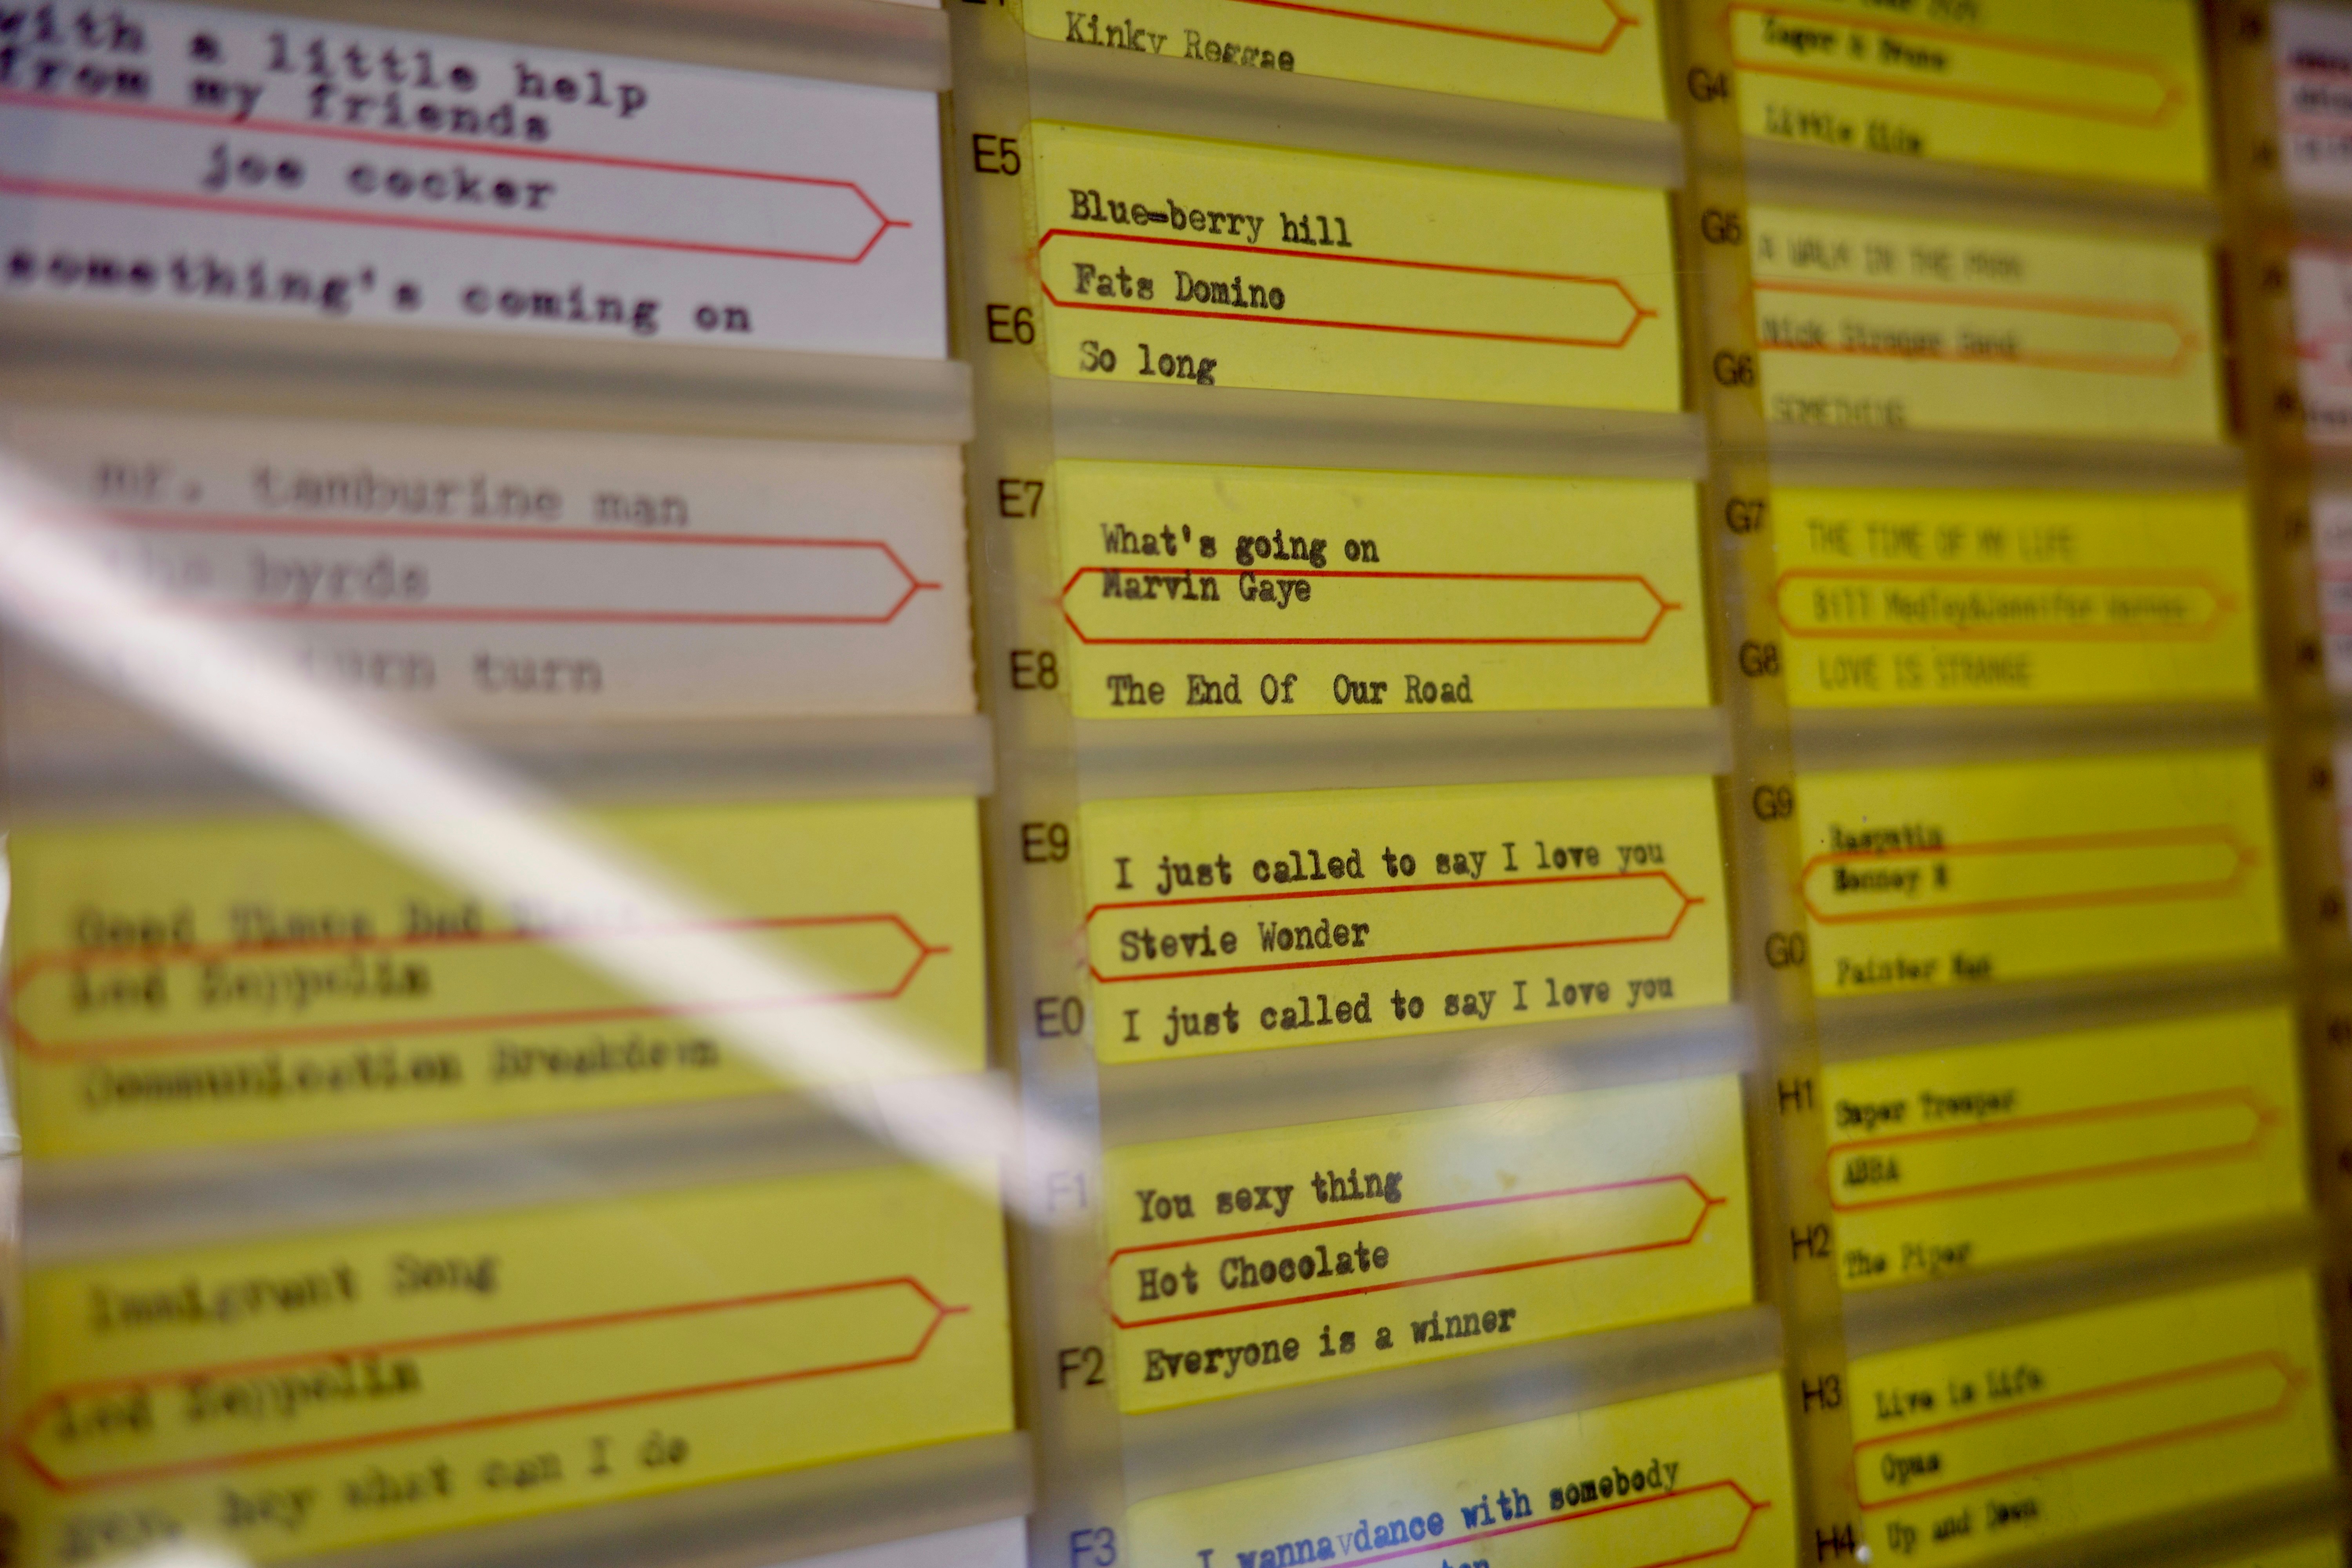 with a little help
from my friends
joe cocker
something's coming on
mr. tamburine man
byrds
turn turn
Good Times Bad
Led Zeppelin
Communication Breakdown
Immigrant Song
Led Zeppelin
hey what can I do
Kinky Reggae
E5
Blue-berry hill
Fats Domino
E6
So long
E7
What's going on
Marvin Gaye
E8
The End Of Our Road
E9
I just called to say I love you
Stevie Wonder
E0
I just called to say I love you
F1
You sexy thing
Hot Chocolate
F2
Everyone is a winner
F3
I wanna dance with somebody
Zager & Evans
G4
Little
G5
A WALK IN THE PARK
Nick Straker Band
G6
SOMETHING
G7
THE TIME OF MY LIFE
Bill Medley&Jennifer Warnes
G8
LOVE IS STRANGE
G9
Rasputin
Bonney M
G0
Painter Man
H1
Super Trouper
ABBA
H2
The Piper
H3
Live is life
Opus
H4
Up and Down